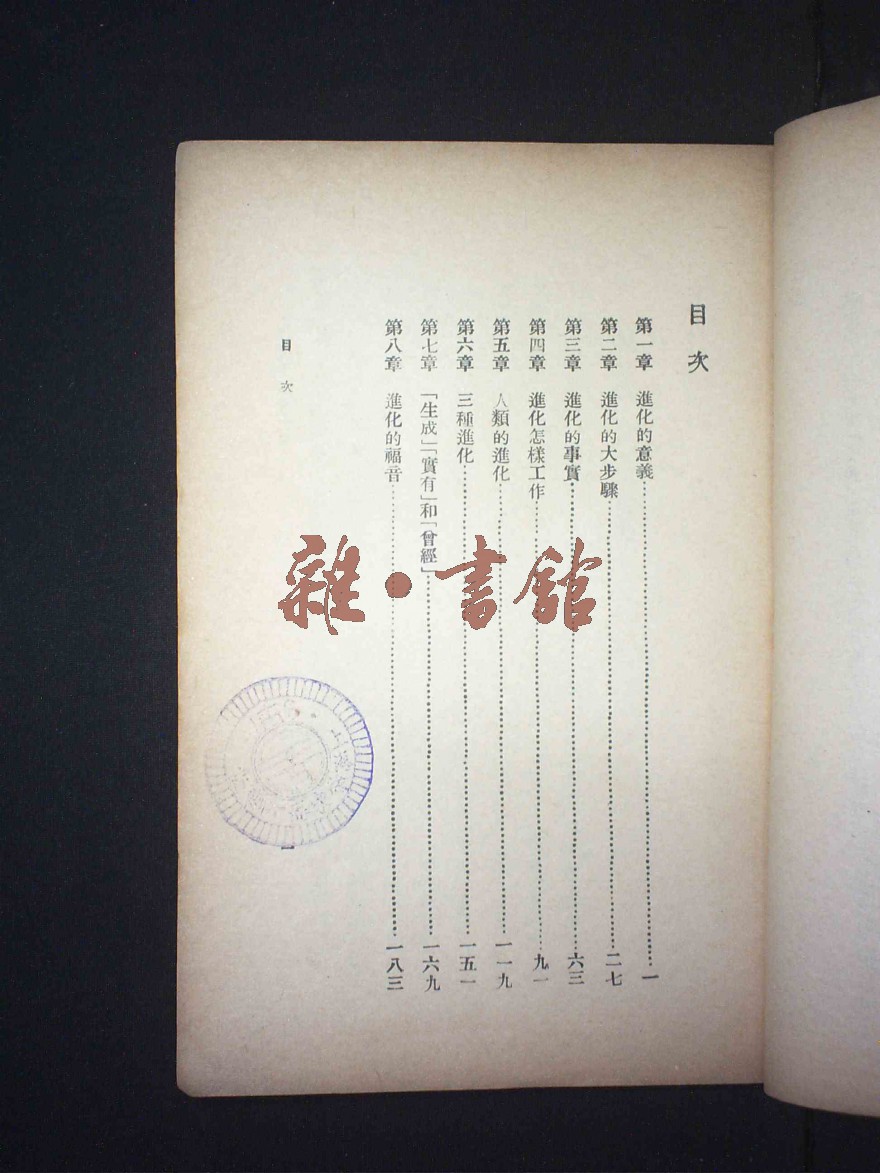 目次
第一章 進化的意義……一
第二章 進化的大步驟……二七
第三章 進化的事實……六三
第四章 進化怎樣工作……九一
第五章 人類的進化……一一九
第六章 三種進化……一五一
第七章 「生成」「實有」和「曾經」……一六九
第八章 進化的福音……一八三
目次
一
雜·書館